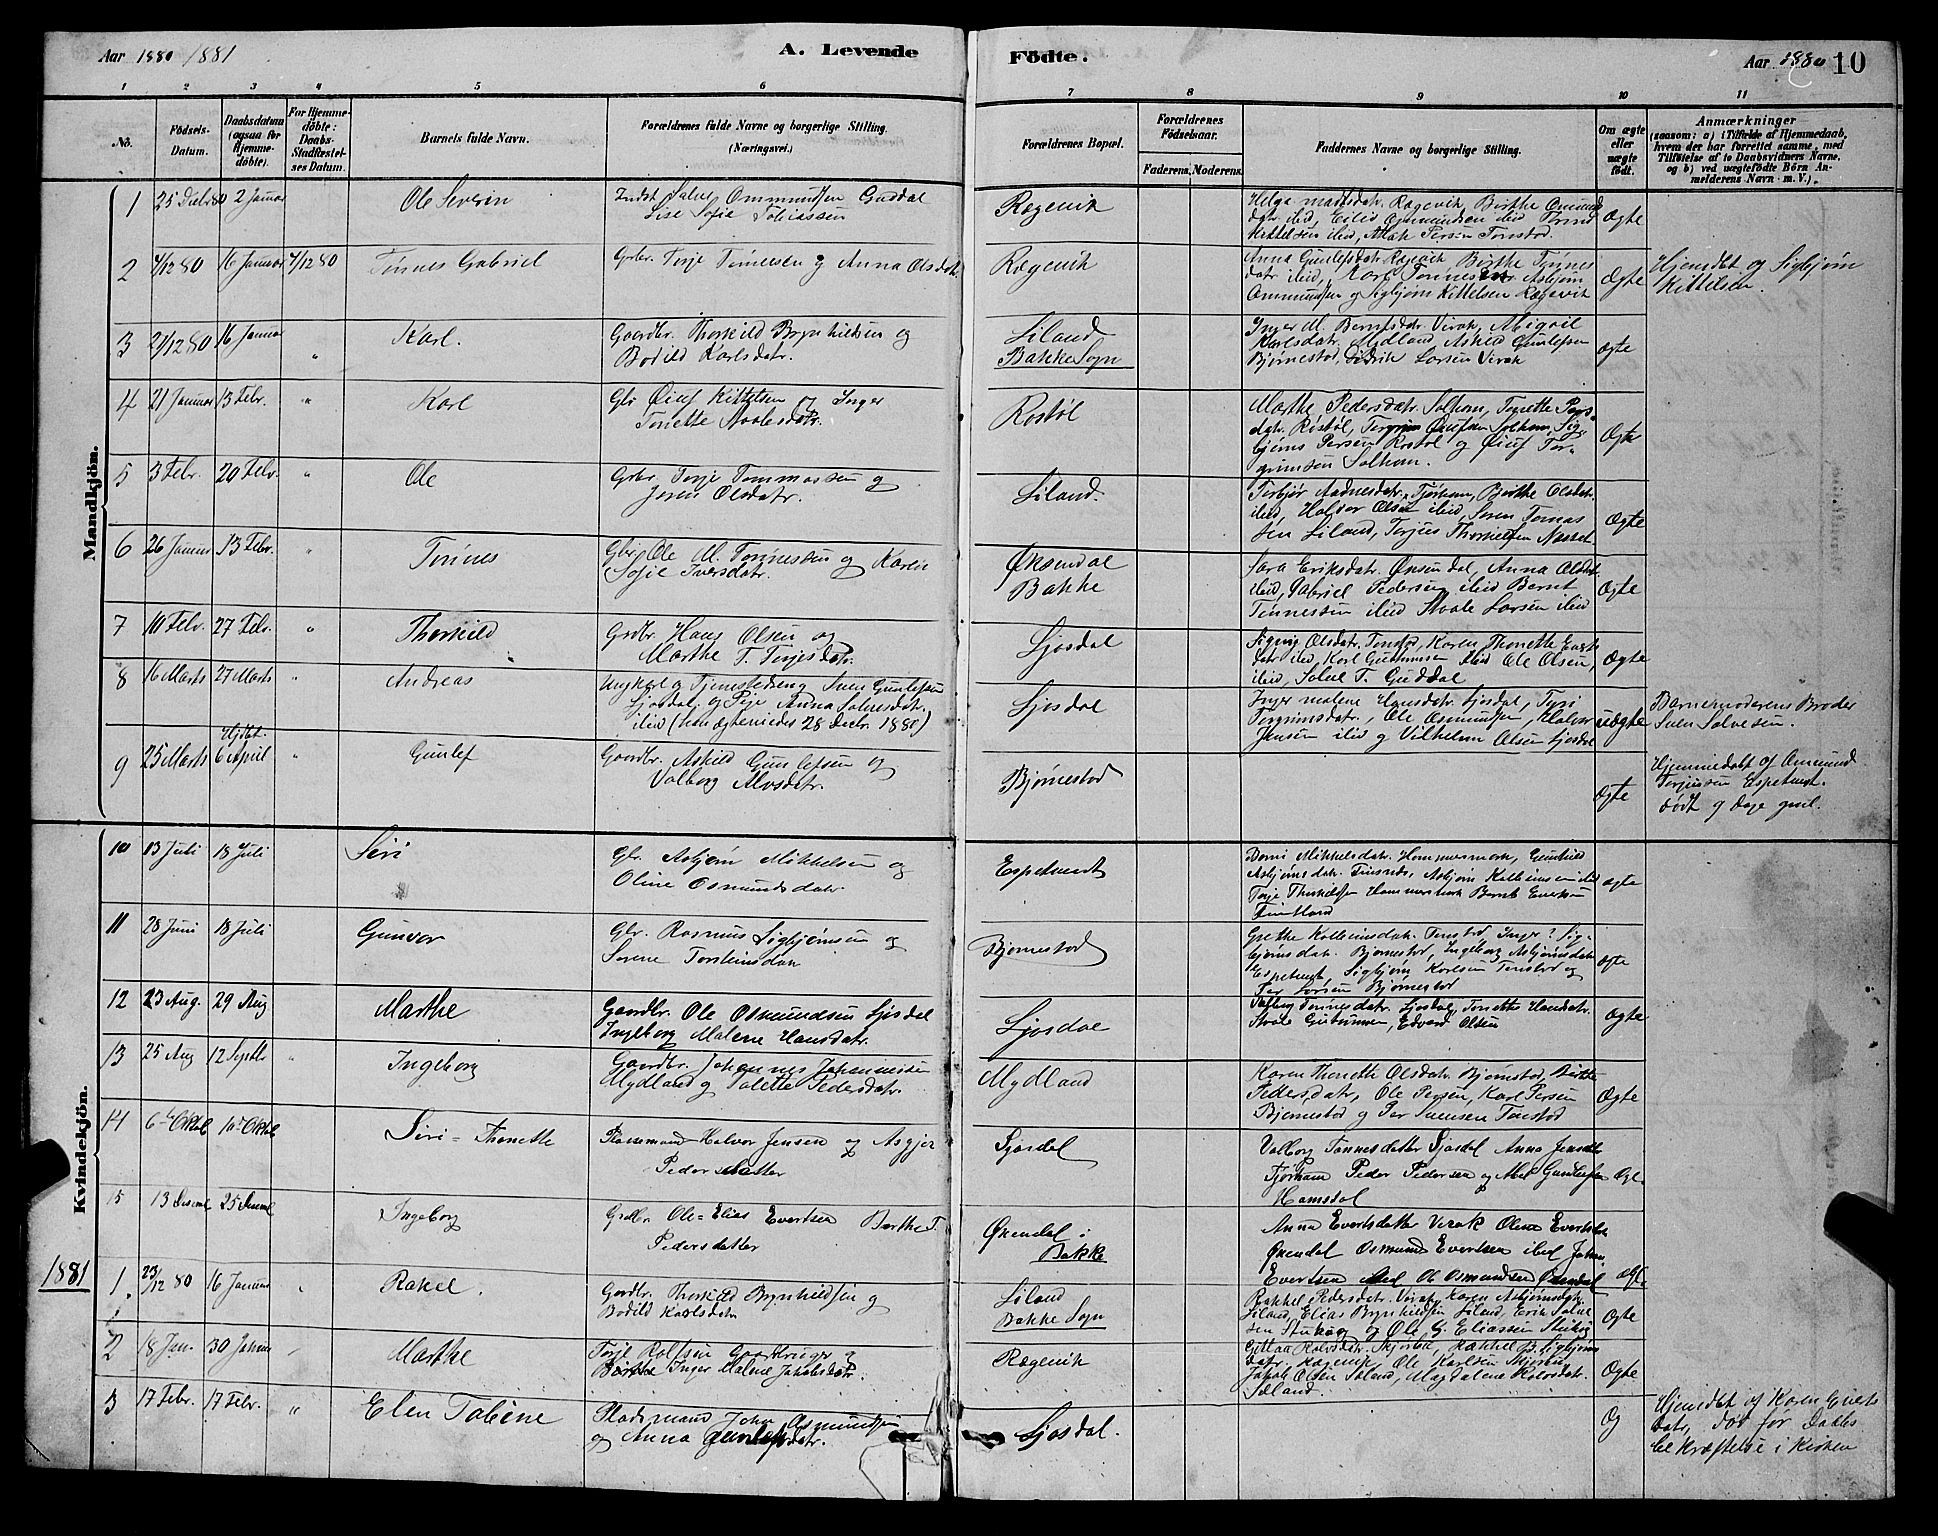 Aar 1880/1881
A. Levende
Födte.
Aar 1880
10
1 2 3 4 5 6 7 8 9 10 11
No.
Födsels-Datum.
Daabsdatum (ogsaa for Hjemmedöbte).
For Hjemmedöbte: Daabs-Stadfæstelses Datum.
Barnets fulde Navn.
Forældrenes fulde Navne og borgerlige Stilling. (Næringsvei.)
Forældrenes Bopæl.
Forældrenes Födselsaar.
Faderens. Moderens.
Faddernes Navne og borgerlige Stilling.
Om ægte eller uægte födt.
Anmærkninger (saasom: a) i Tilfælde af Hjemmedaab, hvem der har forrettet samme, med Tilföielse af to Daabsvidners Navne, og b) ved uægtefödte Börn Anmelderens Navn m. V.).
Mandkjön.
1 25 Decbr 80 2 Januar Ole Severin Indst Salve Ommundsen Guddal
Lise Sofie Tobiassen
Rægevik
Helga Madsdatr. Rægevik, Birthe Ommunds
datr ibid,
Ægte
2 4/12 80 16 Januar 4/12 80 Tønnes Gabriel Grbr. Terje Tønnesen og Anna Olsdatr.
Rægevik
Anna Gunlefsdatr Rægevik Birthe Tønnes
datr ibid, Karl Tønnesen Asbjørn
Ommundsen og Sigbjørn Kittelsen Rægevik
Ægte
Hjemdbt og Sigbjørn
Kittelsen.
3 21/12 80 16 Januar " Karl. Gaardbr. Thorkild Brynhildsen og
Bodild Karlsdatr.
Liland
Bakke Sogn
Inger M. Berntsdtr. Virak, Abigail
Karlsdatr. Mydland, Askild Gunlefsen
Bjørnestad, Didrik Larsen Virak
Ægte
4 21 Januar 13 Febr. " Karl Gbr Øiuf Kittelsen og Inger
Tonette Aaalesdatr.
Rostøl
Marthe Pedersdatr. Solhom, Tonette Pers
datr. Rostøl, Torgrim Øiufsen Solhom, Sig
bjørns Persen Rostøl og Øiuf Tor-
grimsen Solhom.
Ægte
5 3 Febr. 20 Febr. " Ole Grbr. Terje Tommassen og
Joren Olsdatr.
Liland.
Torbjør Aadnesdatr. Tjørhom, Birthe Olsdatr.
ibid, Halvor Olsen ibid, Søren Tomas
sen Liland, Terjus Thorkelsen Næset
Ægte
6 26 Januar 13 Febr. " Tønnes Gbr. Ole M. Tønnessen og Karen
Sofie Iversdatr.
Øksendal
Bakke
Sara Eriksdatr. Øksendal, Anna Olsdatr
ibid, Gabriel Pedersen ibid Bernt
Tønnessen ibid Staale Larsen ibid
Ægte
7 10 Febr. 27 Febr. " Thorkild Grdbr. Hans Olsen og
Marthe T. Terjesdatr.
Ljosdal
Signig Olsdatr. Tonstad, Karen Thonette Everts
datr ibid, Karl Gudmunsen ibid Ole Olsen,
ibid, Salve T. Guddal
Ægte
8 16 Marts 27 Marts " Andreas Ungkarl og Tjenestedreng Sven Gunlefsen
Ljosdal og Pige Anna Salvesdatr.
ibid (han ægteviedes 28 Decbr. 1880)
Ljosdal
Inger Malene Hansdatr. Ljosdal, Tyri
Torgrimsdatr., Ole Osmundsen, Halvor
Jensen ibid og Vilhelm Olsen Ljosdal
uægte
Barnemoderens Broder
Sven Salvesen.
9 25 Marts Hjdbt. 6 April " Gunlef Gaardbr. Askild Gunlefsen og
Valborg Alvsdatr.
Bjørnestad
Ægte
Hjemmedøbt af Ommund
Terjussen Espetveit.
død 9 Dage gml.
Kvindekjön.
10 13 Juli 18 Juli Siri Gbr. Asbjørn Mikkelsen og
Oline Osmundsdatr.
Espetveit
Berni Mikkelsdatr. Hommersmork, Gunhild
Asbjørnsdatr. Asbjørn Kolbeinsen ibid
Terje Thorkelsen Bernt Evertsen
Fintland
Ægte
11 28 Juni 18 Juli Gunvor Gbr. Rasmus Sigbjørnsen og
Serene Torsteinsdatr
Bjørnestad
Grethe Kolbeinsdatr. Tonstad, Inger? Sig-
bjørnsdatr. Bjørnestad, Ingeborg Asbjørnsdatr
Espetveit, Sigbjørn Karlsen Tonstad og
Per Larsen Bjørnestad
Ægte
12 23 Aug. 29 Aug Marthe Gaardbr. Ole Osmundsen Ljosdal
Ingeborg Malene Hansdatr.
Ljosdal
Valborg Tønnesdatr. Ljosdal, Tonette Hansdatr.
Staale Gudmunsen, Edvard Olsen
Ægte
13 25 Aug 12 Septbr " Ingeborg Gaardbr. Johannes Johannessen
Mydland og Tolette Pedersdatr.
Mydland
Karen Thonette Olsdatr. Bjørnstad, Birthe
Pedersdatr, Ole Persen, Karl Persen
Bjørnestad og Per Svensen Tonstad
Ægte
14 6te Oktob 10de Oktob Siri-Thonette Pladsmand Halvor Jensen og Asgjer
Pedersdatter
Ljosdal
Valborg Tønnesdatter Ljosdal Anna Jensdtr
Tjørhom Peder Pedersen og Abel Gunlefsen
Hamsdal
Ægte
15 13 Decembr 25 Decembr Ingeborg Grdbr Ole-Elias Evertsen Berthe T.
Pedersdatter
Øxendal i
Bakke
Anna Evertsdatter Virak Olene Evertsdtr
Øxendal Osmund Evertsen ibid Johan
Evertsen ibid Ole Osmundsen Øxendal
Ægte
1881
1. 23/12 80 16 Januar " Rakel. Gaardbr. Thorkild Brynhildsen og
Bodild Karlsdatr
Liland
Bakke Sogn
Rakkel Pedersdatr. Virak, Karen Asbjørnsdatr
Liland, Elias Brynhildsen Liland, Erik Salve
sen Stukøg og Ole G. Eliassen
Ægte
2 18 Jan. 30 Januar " Marthe Terje Rolfsen Gaardbruger og
Inger Malene Jakobsdatr
Rægevik
Gitlaa Rolvsdatr. Skjørli, Rakkel B. Sigbjørns
datr. Rægevik, Ole Karlsen Skjørli,
Jakob Olsen Sæland, Magdalene Rolvsdatr.
Sæland.
Ægte
3 17 Febr. 17 Febr. " Elen Tobine Pladsmand John Osmundsen
og Anna Gunlefsdatr.
Ljosdal.
Æg
Hjemdbt af Karen Everts
datr, død før Daabs
bekræftelse i Kirken